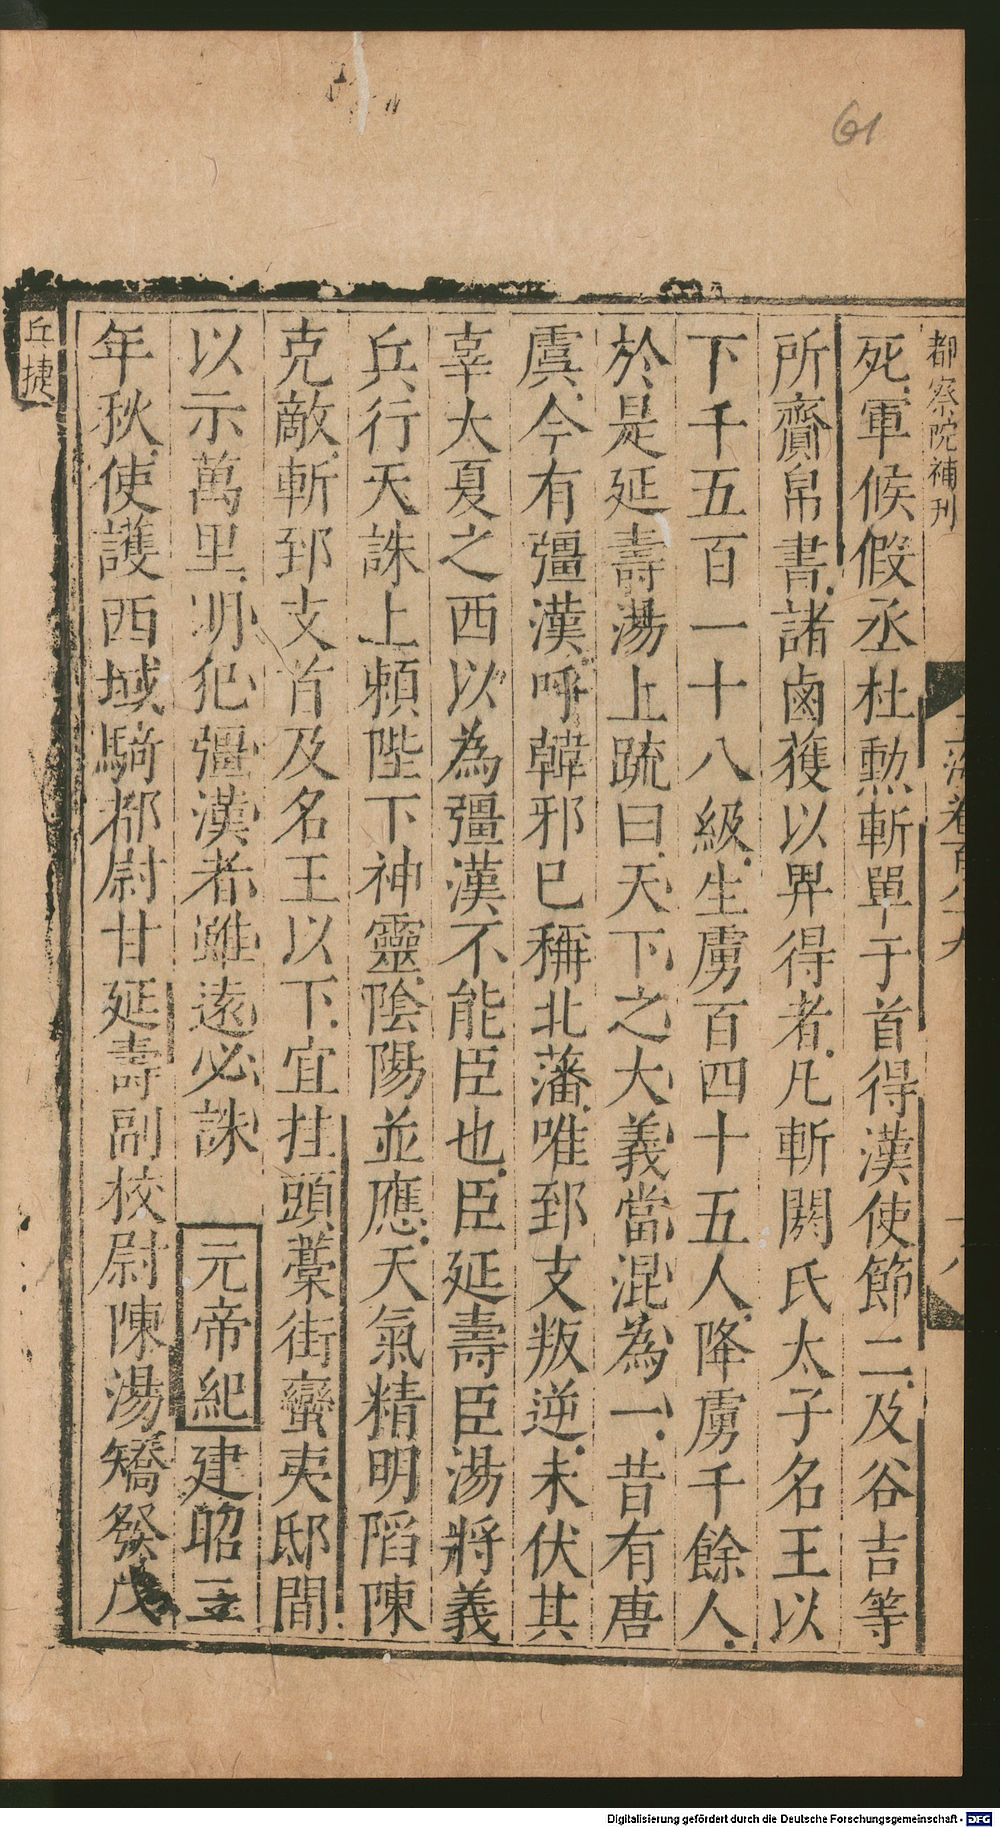 61
都察院補刊
海卷百八十九
十八
死軍候假丞杜勲斬單于首得漢使節二及谷吉等
所齎帛書諸鹵獲以畀得者凡斬閼氏太子名王以
下千五百一十八級生虜百四十五人降虜千餘人
於是延壽湯上疏曰天下之大義當混為一昔有唐
虞今有彊漢呼韓邪已稱北藩唯郅支叛逆未伏其
辜大夏之西以為彊漢不能臣也臣延壽臣湯將義
兵行天誅上賴陛下神靈陰陽並應天氣精明陷陳
克敵斬郅支首及名王以下宜挂頭藁街蠻夷邸間
以示萬里明犯彊漢者雖遠必誅 元帝紀建昭三
年秋使護西域騎都尉甘延壽副校尉陳湯矯發戊
兵捷
Digitalisierung gefördert durch die Deutsche Forschungsgemeinschaft - DFG